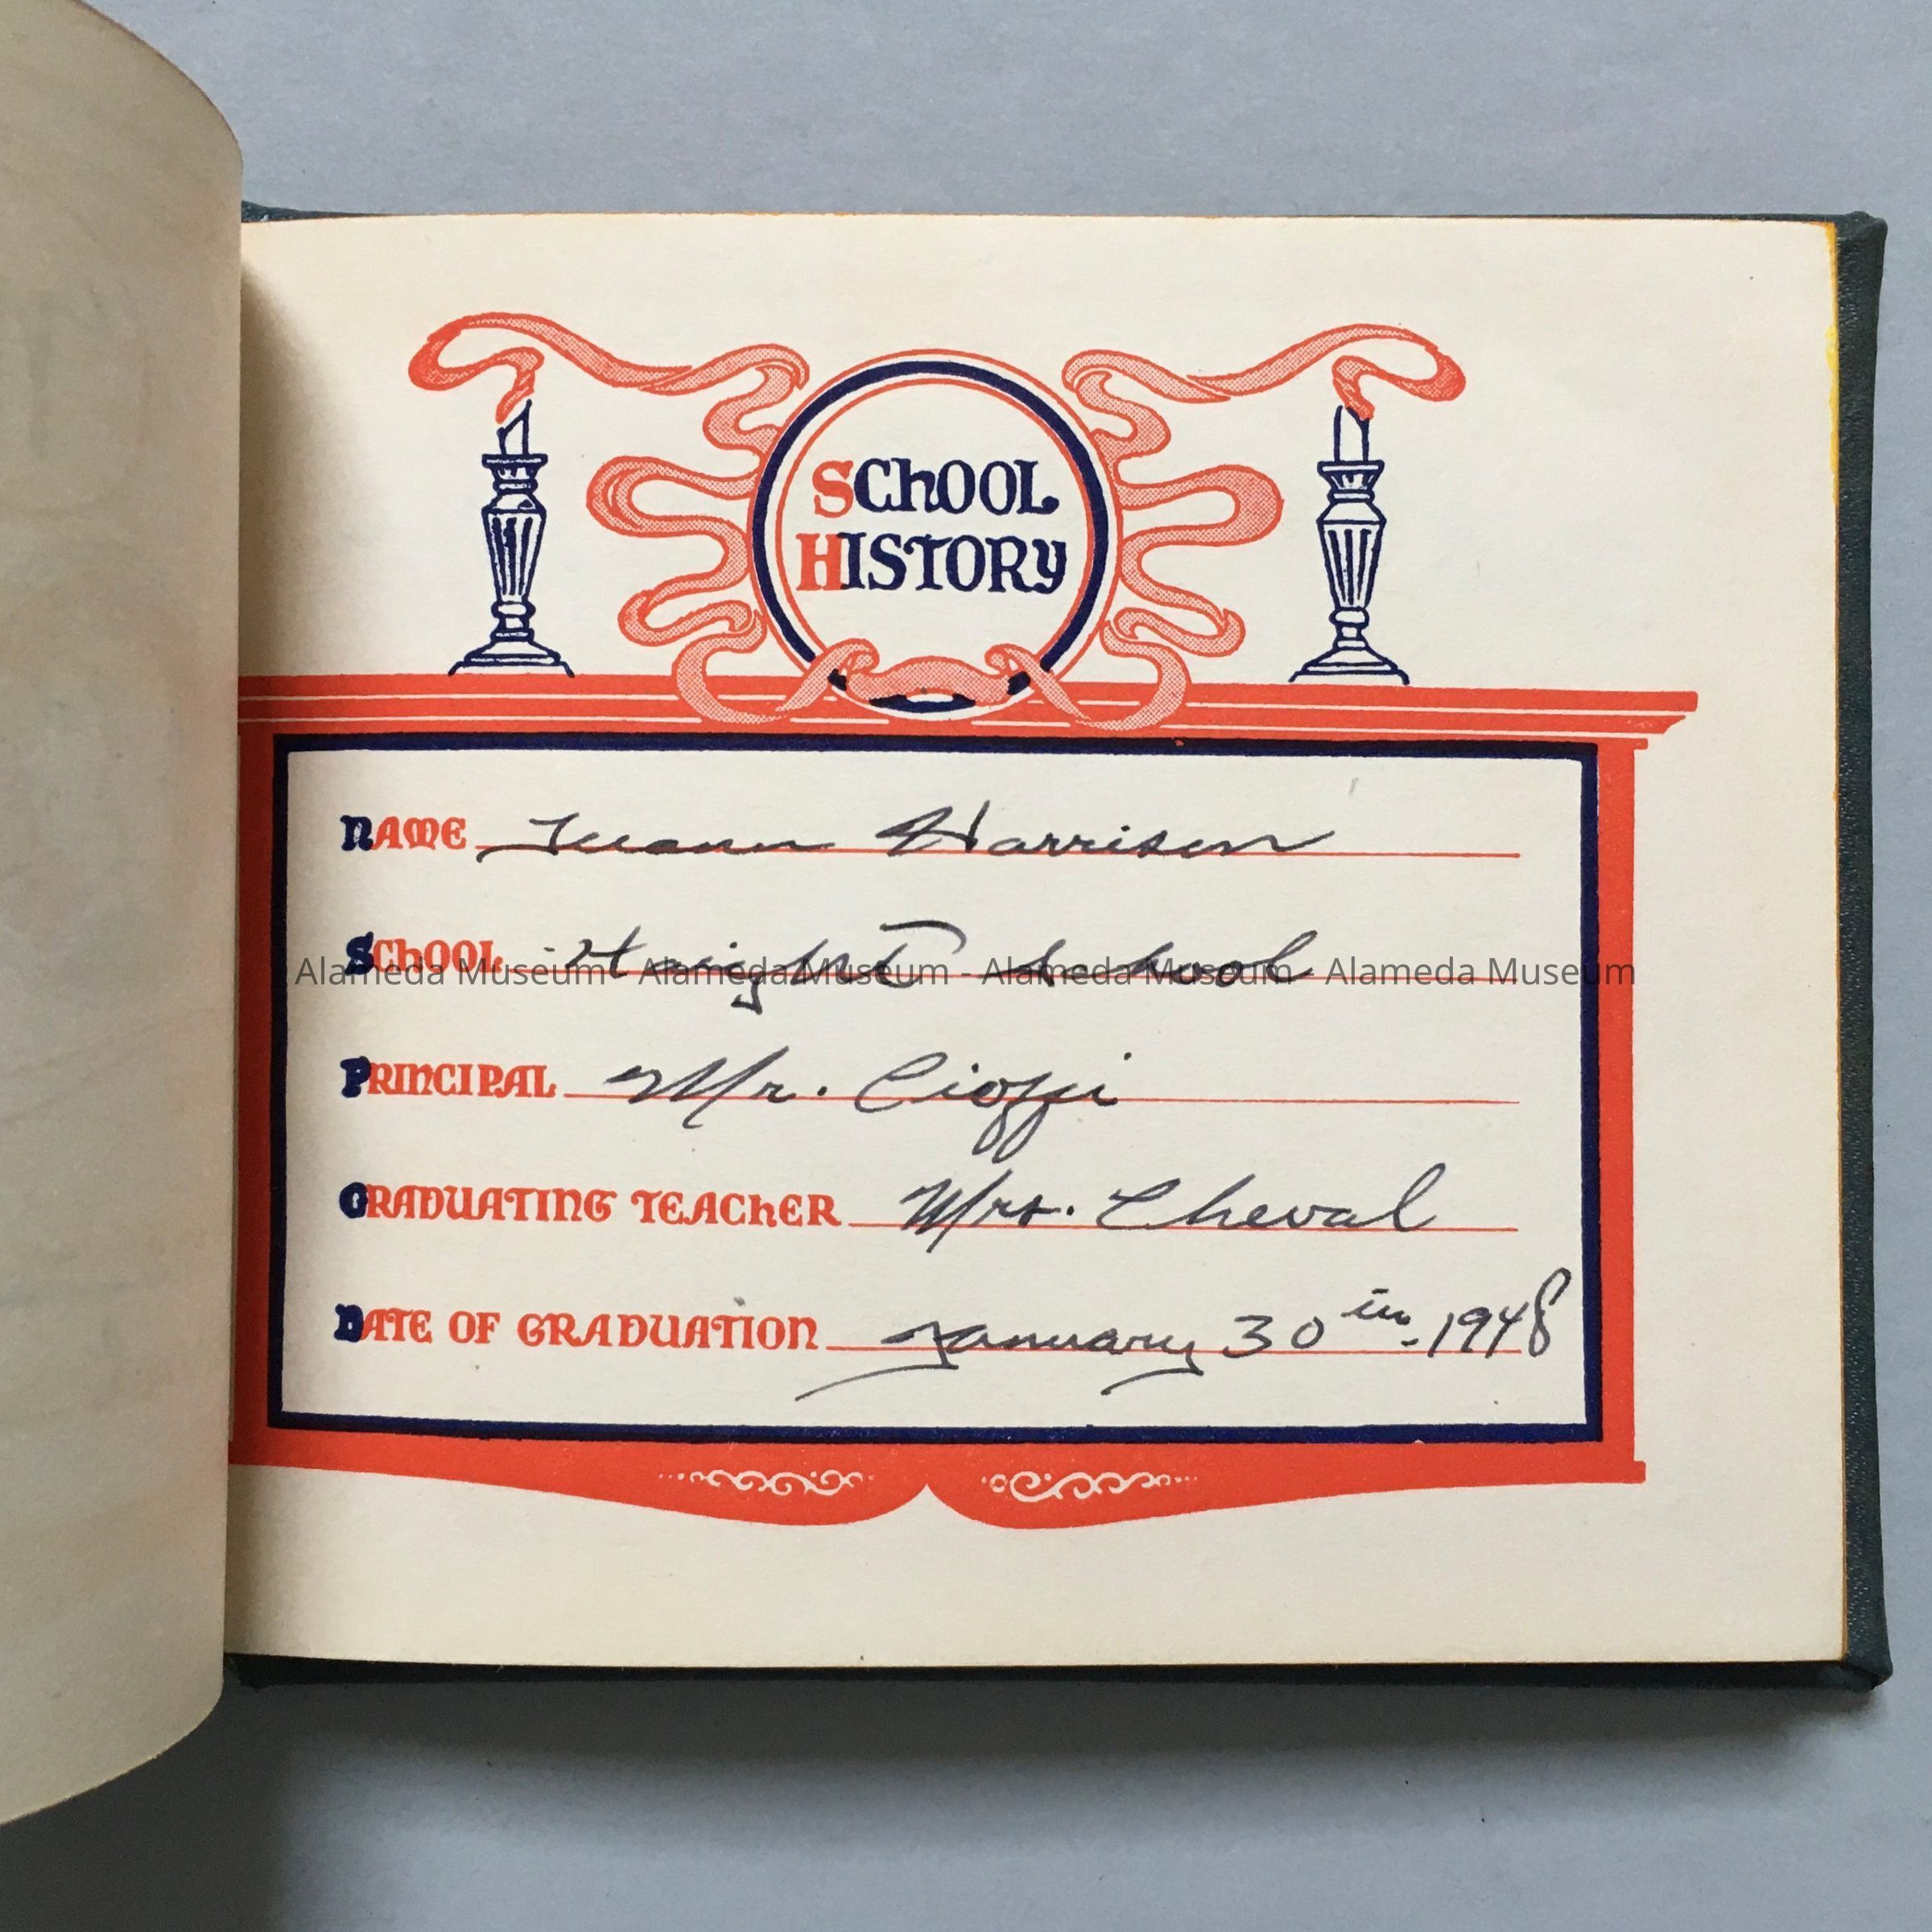 SCHOOL
HISTORY
NAME Luann Harrison
SCHOOL Haight School
Alameda Museum - Alameda Museum - Alameda Museum - Alameda Museum
PRINCIPAL Mr. Cioffi
GRADUATING TEACHER Mrs. Cheval
DATE OF GRADUATION January 30th, 1948